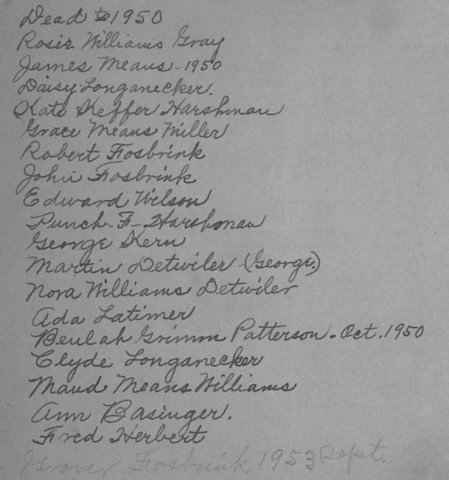 Dead to 1950
Rosie Williams Gray
James Means - 1950
Daisy Longanecker.
Kate Keffer Harshman
Grace Means Miller
Robert Fosbrink
John Fosbrink
Edward Wilson
Punch F- Harshman
George Kern
Martin Detwiler (George)
Nora Williams Detwiler
Ada Latimer
Beulah Grimm Patterson - Oct. 1950
Clyde Longanecker
Maud Means Williams
Ann Basinger.
Fred Herbert
Fosbrink 1953 Sept.